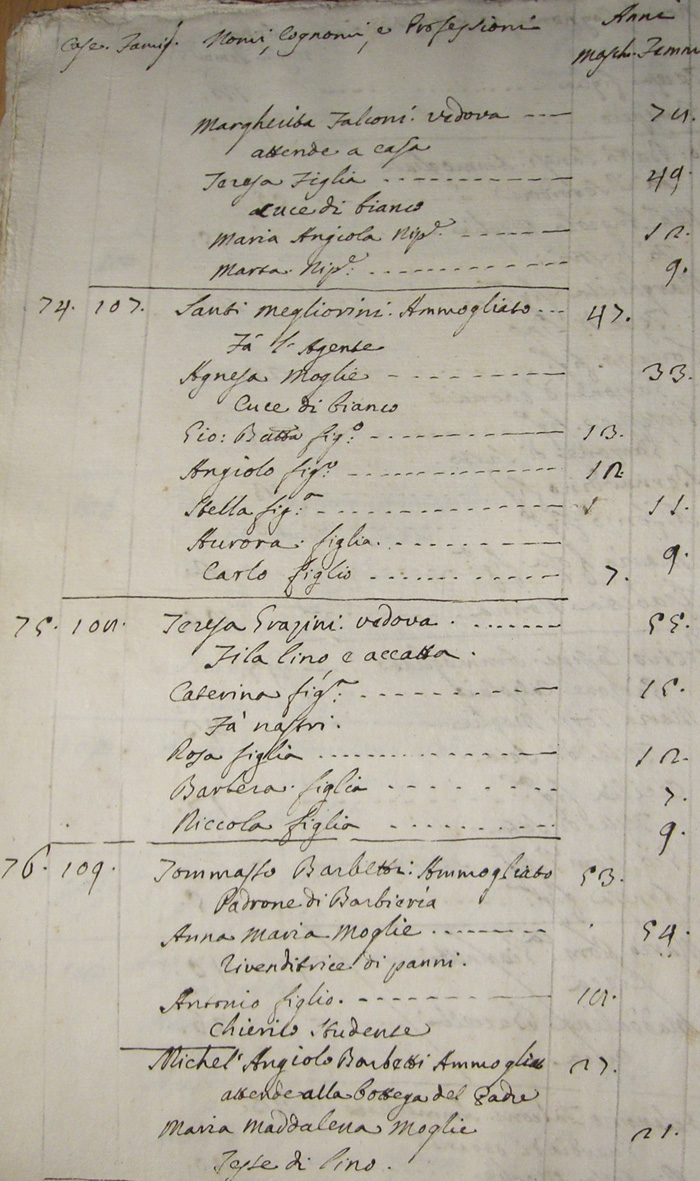 Anni
Case. Famig. Nomi, Cognomi, e Professioni Masch. Femm
Margherita Falconi: vedova --- 74.
attende a casa
Teresa Figlia --- 49.
cuce di bianco
Maria Angiola Nip.e --- 12.
Marta Nip.e --- 9.
74. 107. Santi Megliorini: Ammogliato --- 47.
Fà l'Agente
Agnesa Moglie --- 33.
Cuce di bianco
Gio: Batta fig.o --- 13.
Angiolo fig.o --- 12
Stella fig.a --- 11.
Aurora figlia --- 9.
Carlo figlio --- 7.
75. 108. Teresa Grazini: vedova --- 55.
Fila lino, e accatta.
Caterina fig.a --- 15.
Fà nastri.
Rosa figlia --- 12.
Barbera figlia --- 7.
Niccola figlia --- 9.
76. 109. Tommasso Barbetti: Ammogliato 53.
Padrone di Barbieria
Anna Maria Moglie --- 54.
Rivenditrice di panni.
Antonio figlio. --- 18.
Chierico Studente
Michel'Angiolo Barbetti Ammogliato 27.
attende alla bottega del Padre
Maria Maddalena Moglie 21.
Tesse di lino.